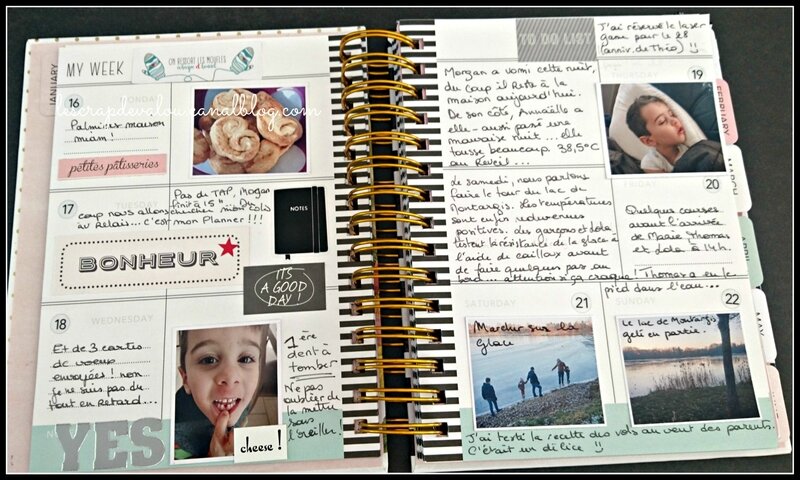 JANUARY
MY WEEK
ON RESSORT LES MOUFLES
lescrapdevalou.canalblog.com
16
MONDAY
Palmiers maison
miam!
petites pâtisseries
17
TUESDAY
Pas de TAP, Morgan
finit à 15h. Du
coup nous allons chercher mon colis
au Relais... c'est mon Planner!!!
BONHEUR
NOTES
IT'S
A GOOD
DAY!
18
WEDNESDAY
Et de 3 cartes
de voeux
envoyées! non
je ne suis pas du
tout en retard...
YES
cheese !
1ère
dent à
tomber
Ne pas
oublier de
la mettre
sous
l'oreiller!
TO DO LIST
J'ai réservé le laser
game pour le 28
(anniv. de Théo) !!
Morgan a vomi cette nuit,
du coup il reste à la
maison aujourd'hui.
De son côté, Armaëlle a
elle-aussi passé une
mauvaise nuit... elle
tousse beaucoup. 38,5°C
au Réveil...
THURSDAY
19
FEBRUARY
MARCH
MAY
FRIDAY
20
Quelques courses
avant l'arrivée
de Marie, Thomas
et Lola à 14h.
Le samedi, nous partons
faire le tour du lac de
Montargis. Les températures
sont enfin redevenues
positives. Les garçons et Lola
testent la résistance de la glace à
l'aide de cailloux avant
de faire quelques pas au
bord... attention si ça craque! Thomas a eu le
pied dans l'eau...
SATURDAY
21
Marcher sur la
glace
SUNDAY
22
Le lac de Montargis
gelé en partie.
J'ai testé la recette des vols au vent des parents.
C'était un délice !!